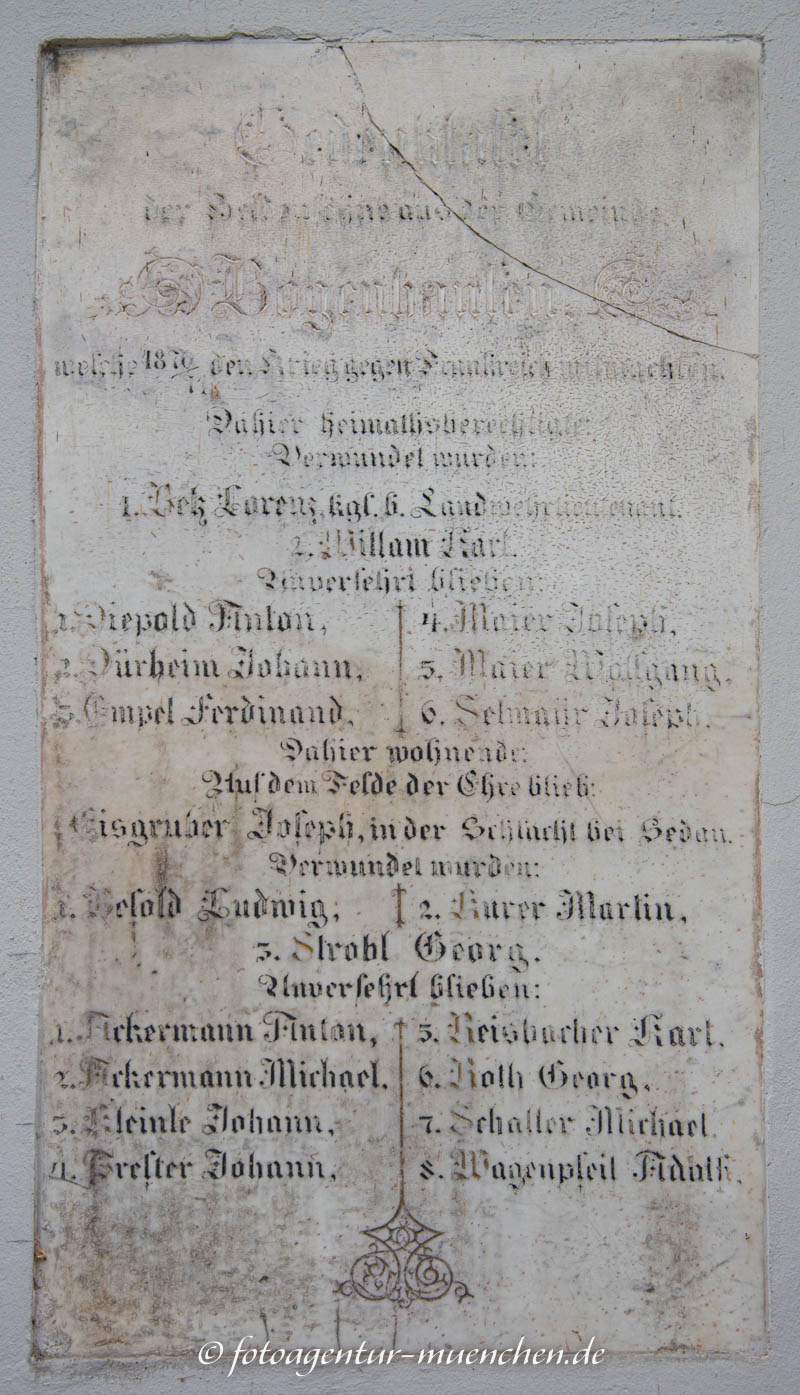 Gedenktafel
der Gemeinde
Bogenhausen,
welche 1870/71 den Krieg gegen Frankreich mitmachten.
Dahier heimathsberechtigte:
Verwundet wurden:
1. Betz Lorenz, kgl. b. Landwehrlieutenant.
2. Willam Karl.
Unversehrt blieben:
1. Diepold Anton, 4. Maier Joseph,
2. Dürheim Johann, 5. Maier Wolfgang,
3. Empel Ferdinand, 6. Selmayr Joseph.
Dahier wohnende:
Auf dem Felde der Ehre blieb:
Eisgruber Joseph, in der Schlacht bei Sedan.
Verwundet wurden:
1. Besold Ludwig, 2. Kurer Martin,
3. Strobl Georg.
Unversehrt blieben:
1. Ackermann Anton, 5. Reisbacher Karl,
2. Ackermann Michael, 6. Roth Georg,
3. Kleinle Johann, 7. Schaller Michael
4. Prester Johann, 8. Wagenpfeil Adolf.
© fotoagentur-muenchen.de